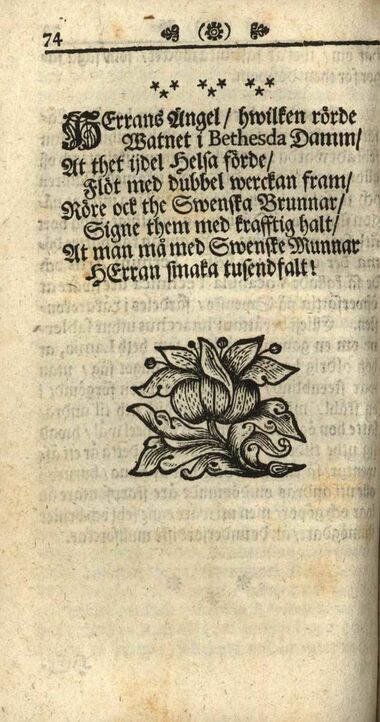 74
HErrans Angel/ hwilken rörde
Watnet i Bethesda Damm/
At thet ijdel Helsa förde/
Flöt med dubbel werckan fram/
Röre ock the Swenska Brunnar/
Signe them med krafftig halt/
At man må med Swenske Munnar
HErran smaka tusendfalt!